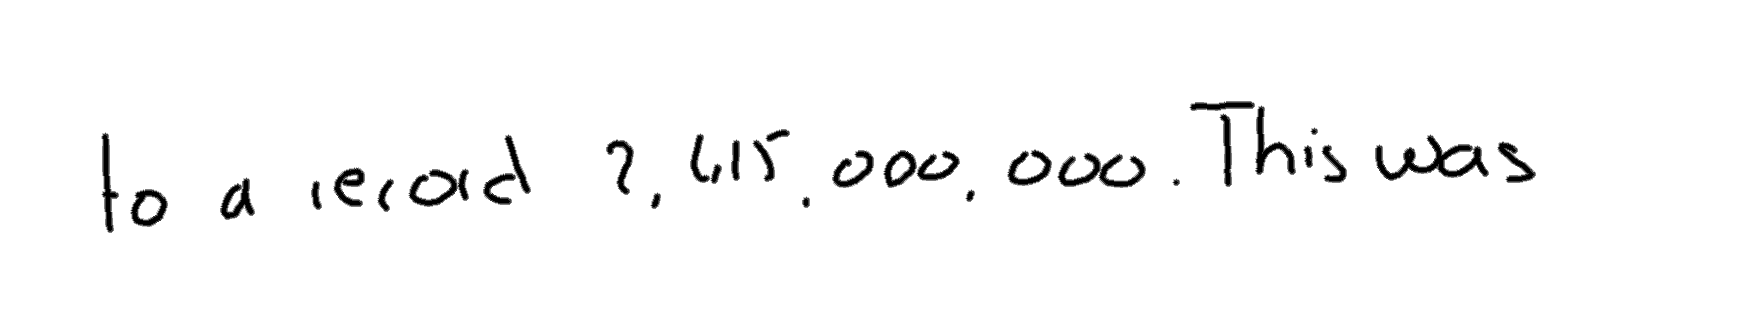 to a record 2,415,000,000. This was